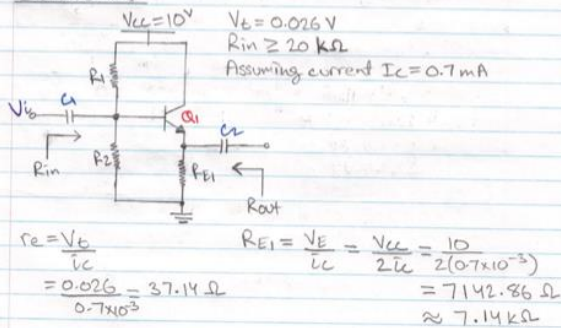 Vcc=10V
Vt = 0.026 V
Rin ≥ 20 kΩ
Assuming current Ic = 0.7 mA
R1
Vi
C1
Q1
C2
Rin
R2
RE1
Rout
re = Vt/ic
= 0.026/0.7x10^-3 = 37.14 Ω
RE1 = VE/ic = Vcc/2ic = 10/2(0.7x10^-3)
= 7142.86 Ω
≈ 7.14 kΩ